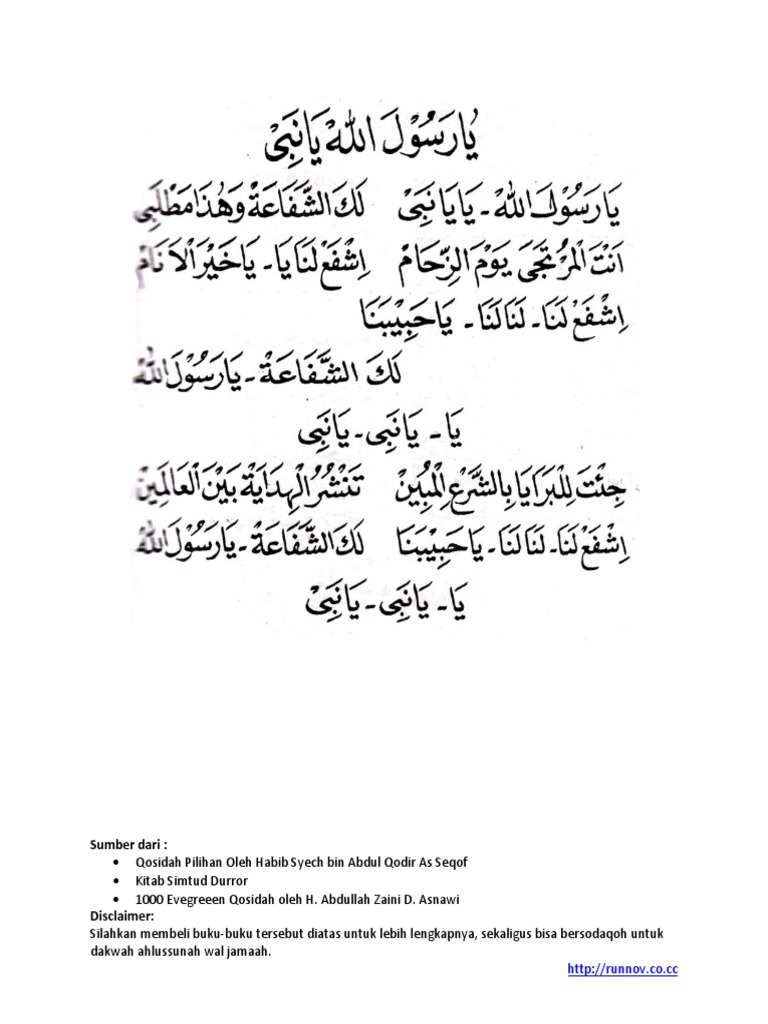 يَارَسُوْلَ اللّٰهْ يَانَبِيْ
يَارَسُوْلَ اللّٰهْ - يَايَانَبِيْ لَكَ الشَّفَاعَةْ وَهٰذَا مَطْلَبِيْ
اَنْتَ الْمُرْتَجَى يَوْمَ الزِّحَامْ اِشْفَعْ لَنَا يَا - يَاخَيْرَ الْاَنَامْ
اِشْفَعْ لَنَا - لَنَا لَنَا - يَاحَبِيْبَنَا
لَكَ الشَّفَاعَةْ - يَارَسُوْلَ اللّٰهْ
يَا - يَانَبِى - يَانَبِى
جِئْتَ لِلْبَرَايَا بِالشَّرْعِ الْمُبِيْنْ تَنْشُرُ الْهِدَايَةْ بَيْنَ الْعَالَمِيْنْ
اِشْفَعْ لَنَا - لَنَا لَنَا - يَاحَبِيْبَنَا لَكَ الشَّفَاعَةْ - يَارَسُوْلَ اللّٰهْ
يَا - يَانَبِى - يَانَبِيْ
Sumber dari :
• Qosidah Pilihan Oleh Habib Syech bin Abdul Qodir As Seqof
• Kitab Simtud Durror
• 1000 Evegreeen Qosidah oleh H. Abdullah Zaini D. Asnawi
Disclaimer:
Silahkan membeli buku-buku tersebut diatas untuk lebih lengkapnya, sekaligus bisa bersodaqoh untuk
dakwah ahlussunah wal jamaah.
http://runnov.co.cc